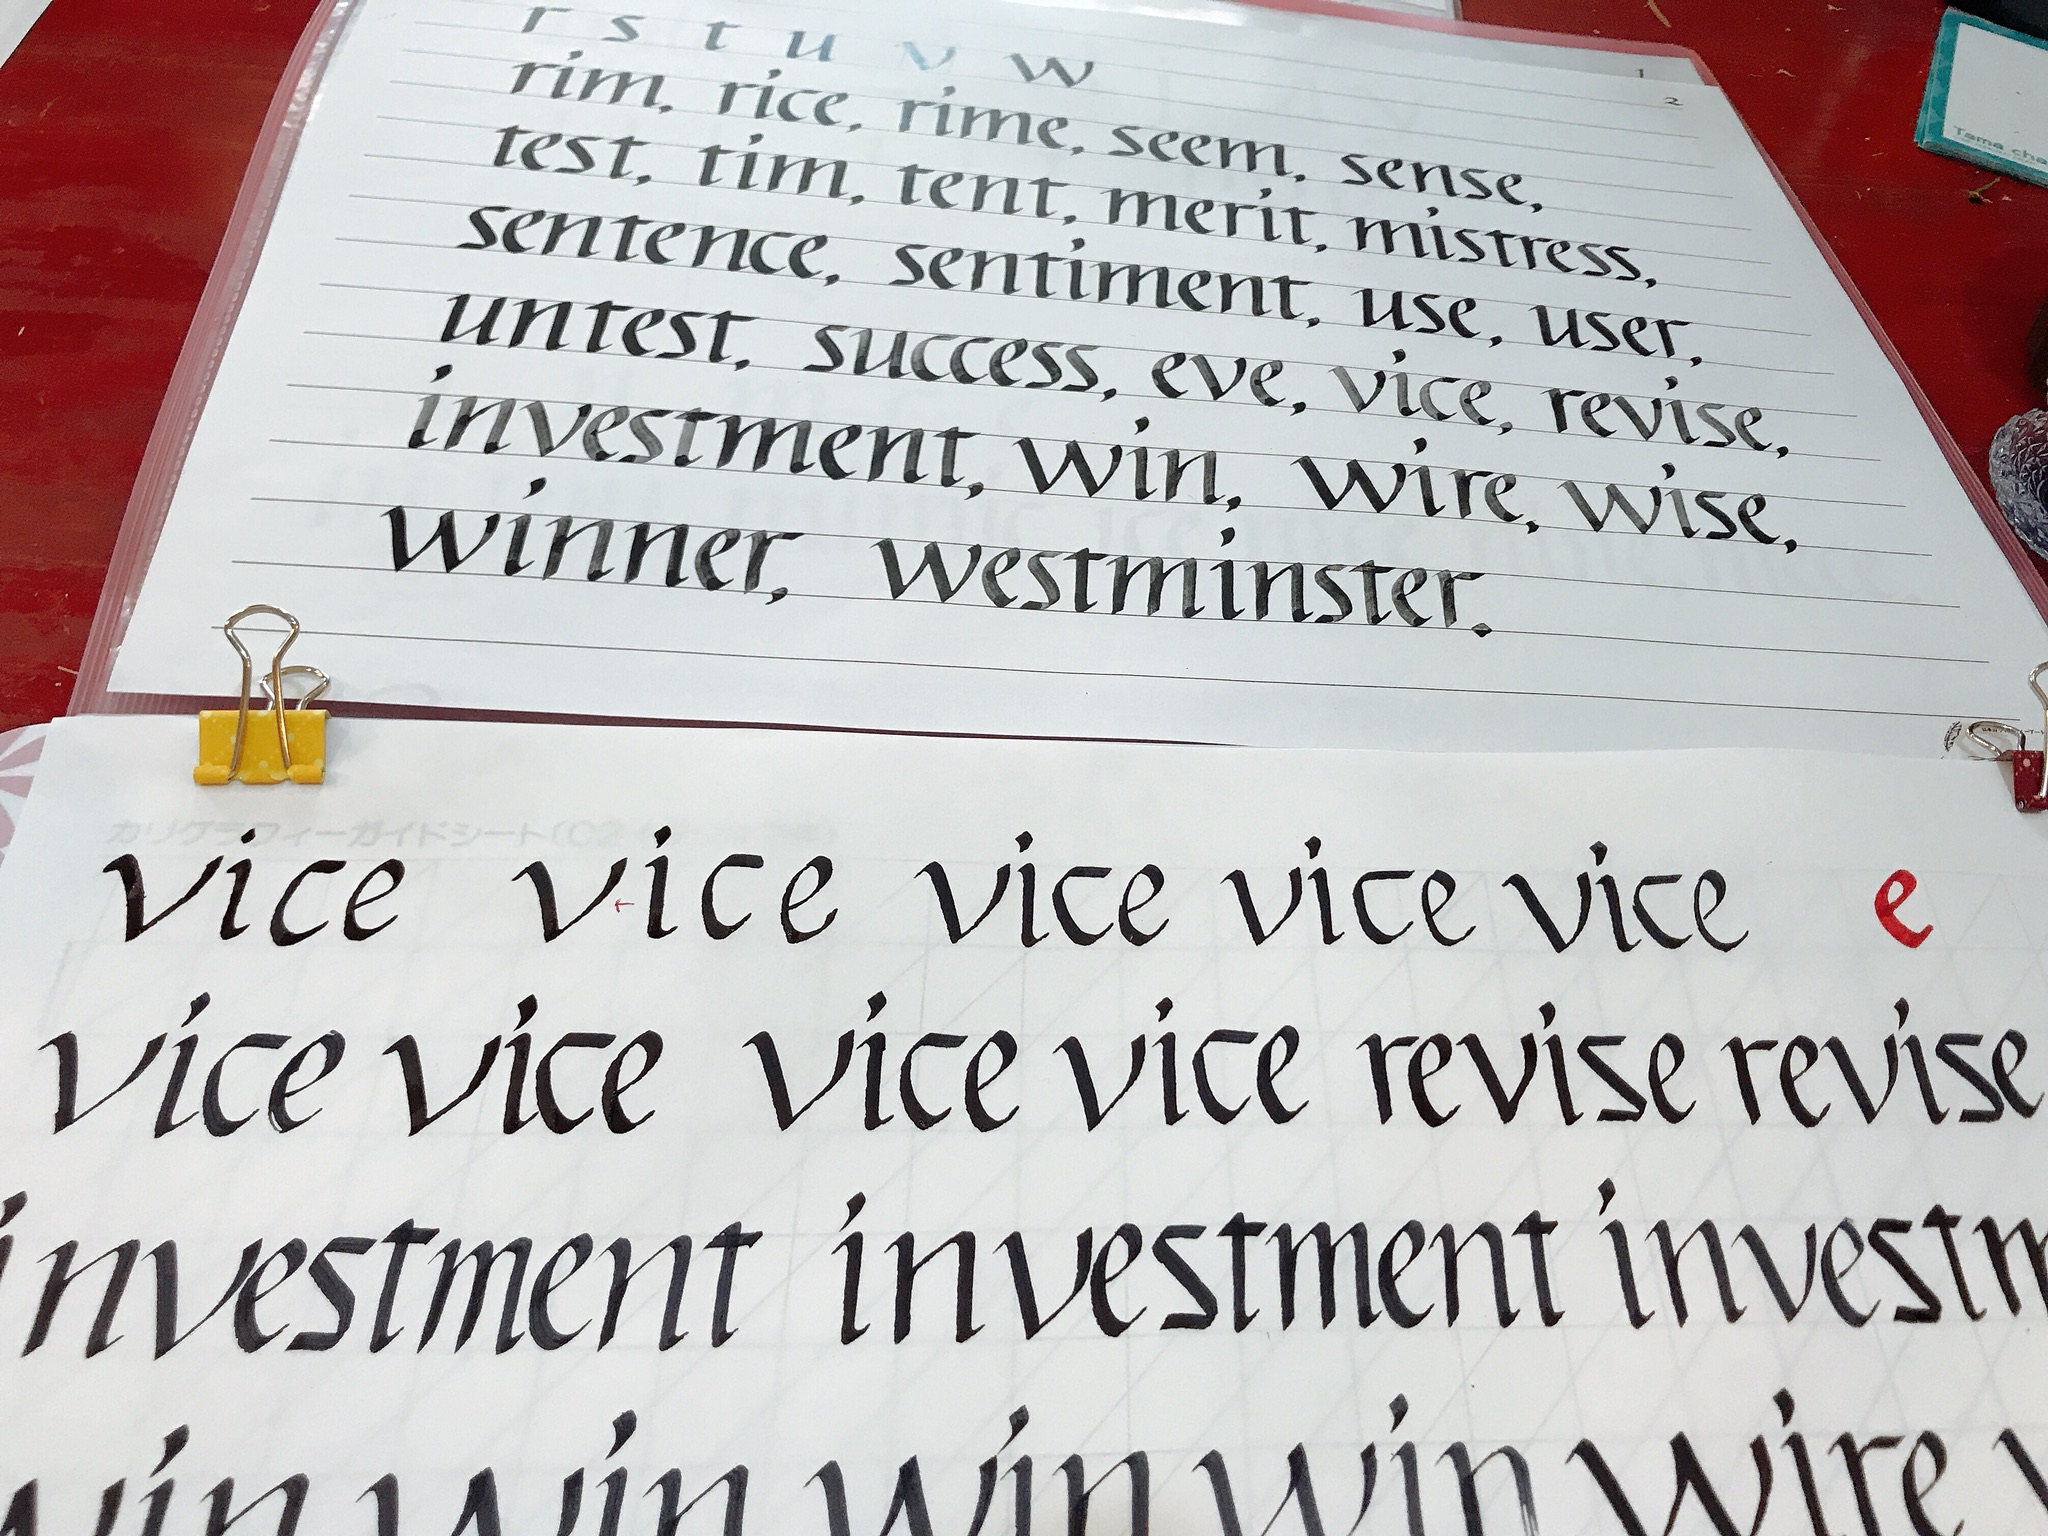 r s t u v w
1
2
rim, rice, rime, seem, sense,
test, tim, tent, merit, mistress,
sentence, sentiment, use, user,
untest, success, eve, vice, revise,
investment, win, wire, wise,
winner, westminster.
Tama cha
カリグラフィーガイドシート(C2
vice vice vice vice vice e
vice vice vice vice revise revise
investment investment investm
win win win win wire